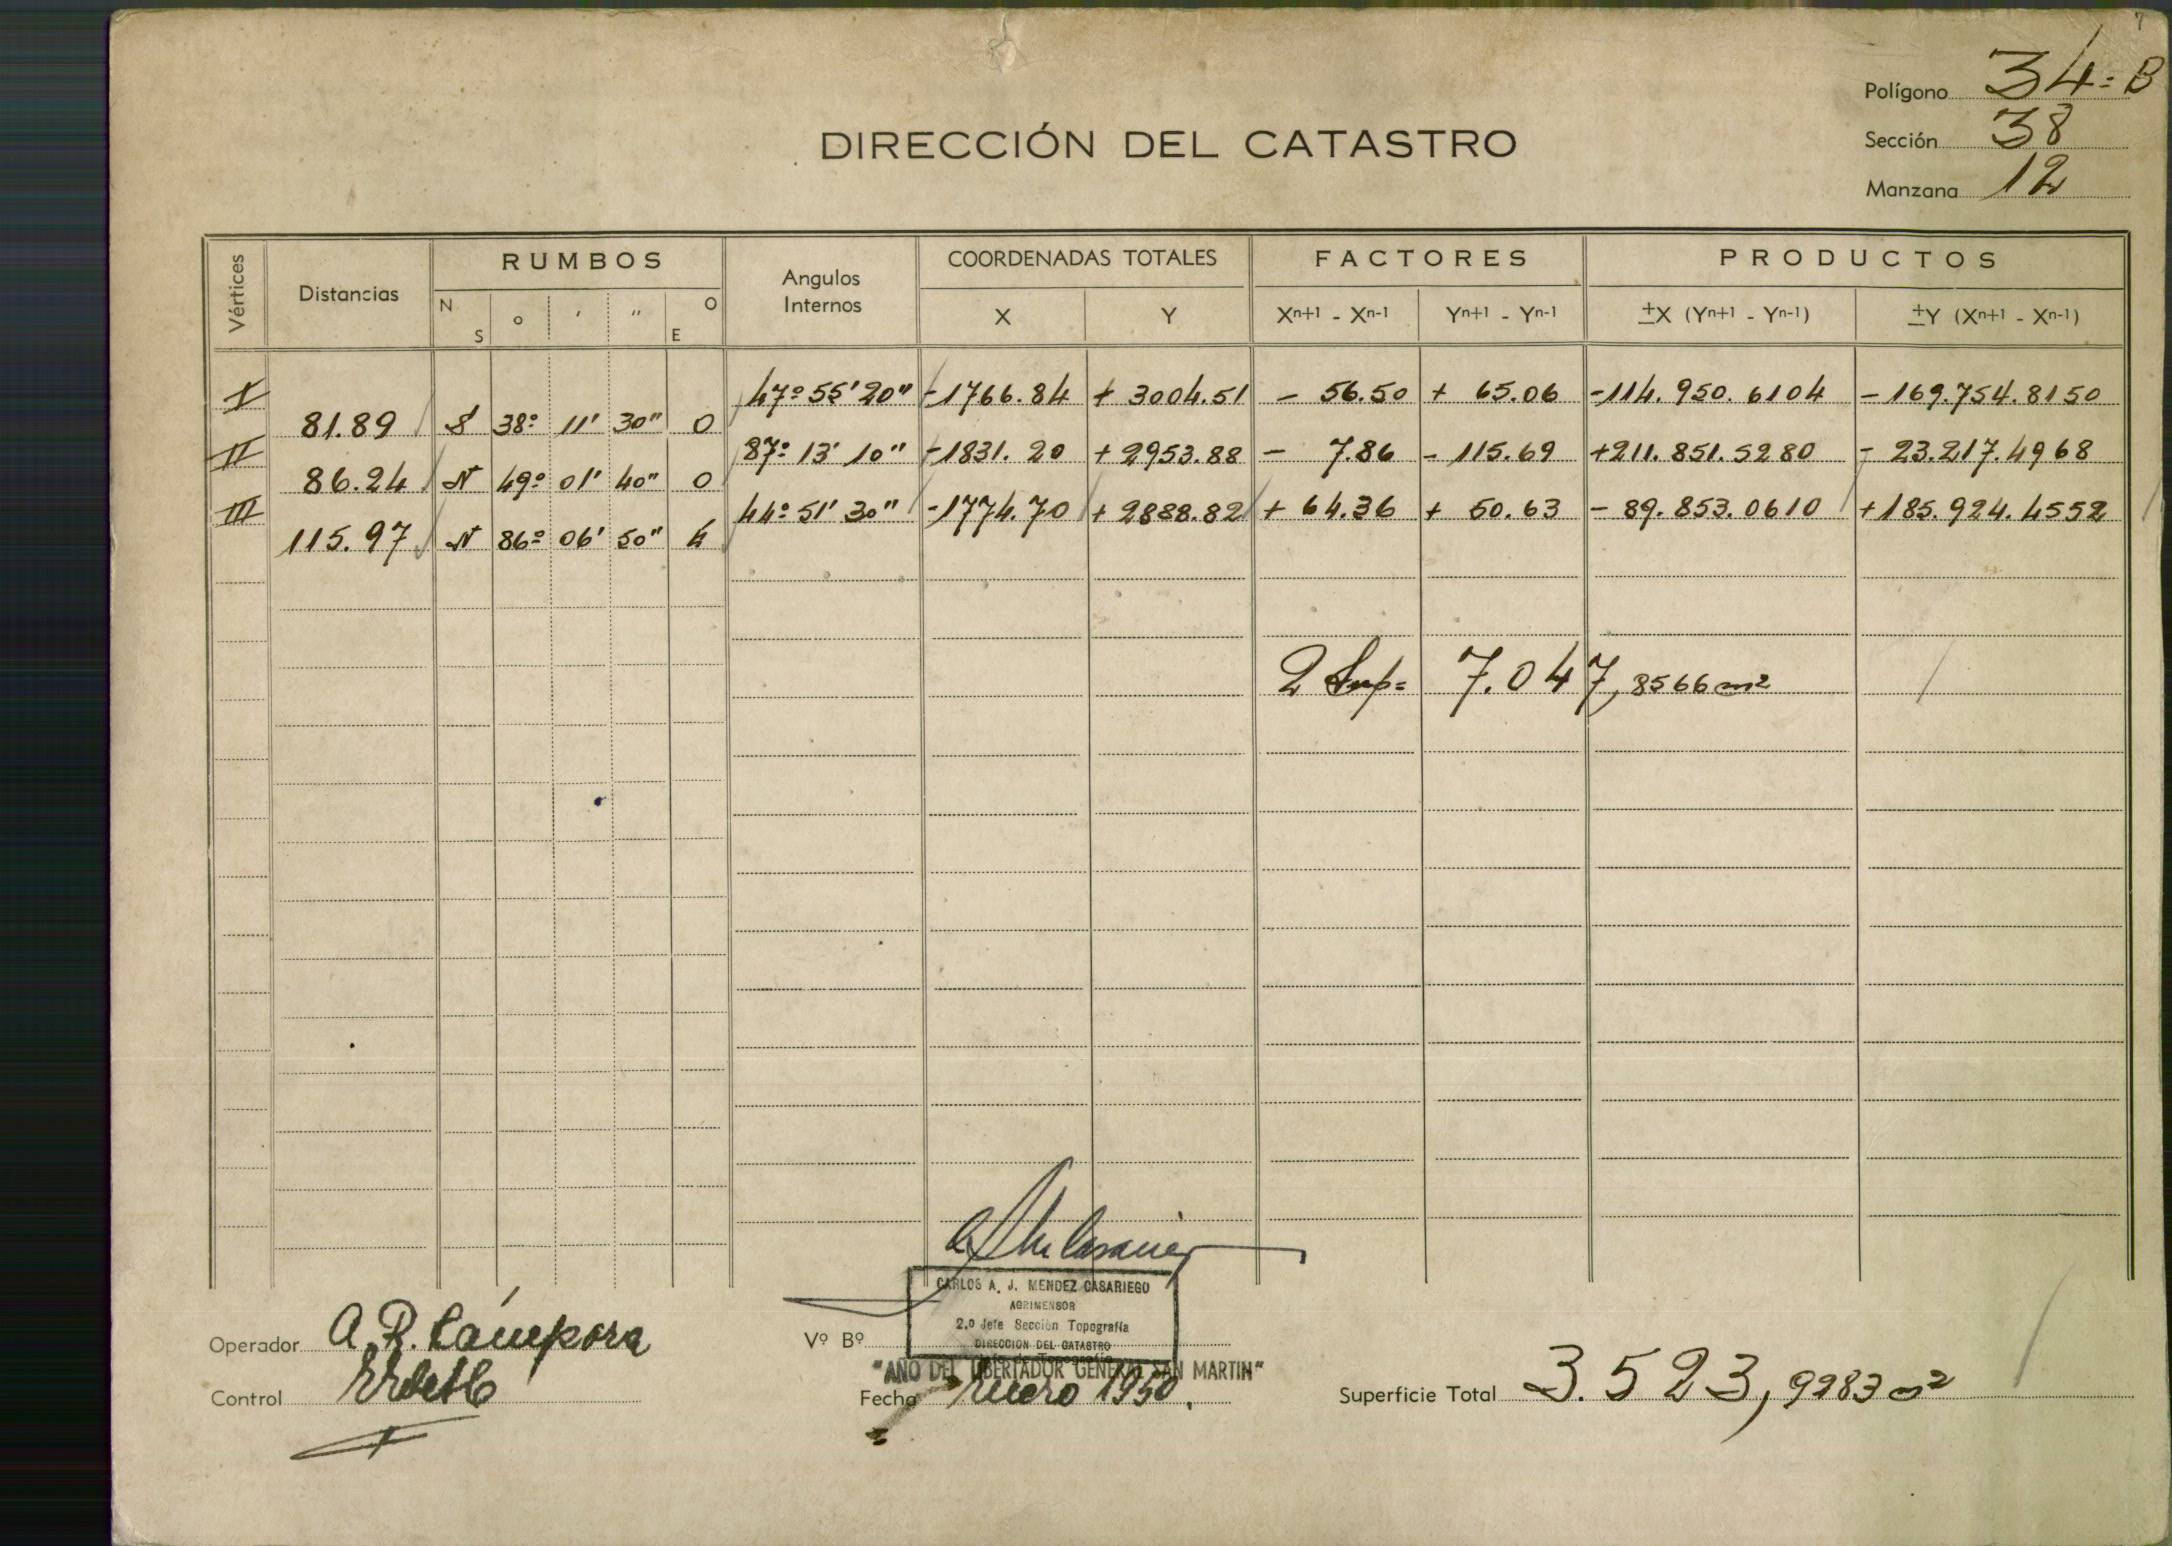 Polígono 34=B
DIRECCIÓN DEL CATASTRO
Sección 38
Manzana 12
Vértices Distancias RUMBOS Angulos Internos COORDENADAS TOTALES FACTORES PRODUCTOS
N S ° ' " O E X Y Xn+1 - Xn-1 Yn+1 - Yn-1 ±X (Yn+1 - Yn-1) ±Y (Xn+1 - Xn-1)
I 47º 55' 20" -1766.84 + 3004.51 - 56.50 + 65.06 -114.950.6104 - 169.754.8150
81.89 S 38º 11' 30" O
II 87º 13' 10" -1831.20 + 2953.88 - 7.86 - 115.69 +211.851.5280 - 23.217.4968
86.24 N 49º 01' 40" O
III 44º 51' 30" -1774.70 + 2888.82 + 64.36 + 50.63 - 89.853.0610 +185.924.4552
115.97 N 86º 06' 50" E
2 Sup= 7.047,8566 m2
CARLOS A. J. MENDEZ CASARIEGO
AGRIMENSOR
2.o Jefe Sección Topografía
DIRECCION DEL CATASTRO
Operador A. R. Cámpora
Vº Bº
"AÑO DEL LIBERTADOR GENERAL SAN MARTIN"
Control
Fecha Enero 1950.
Superficie Total 3.523,9283 m2